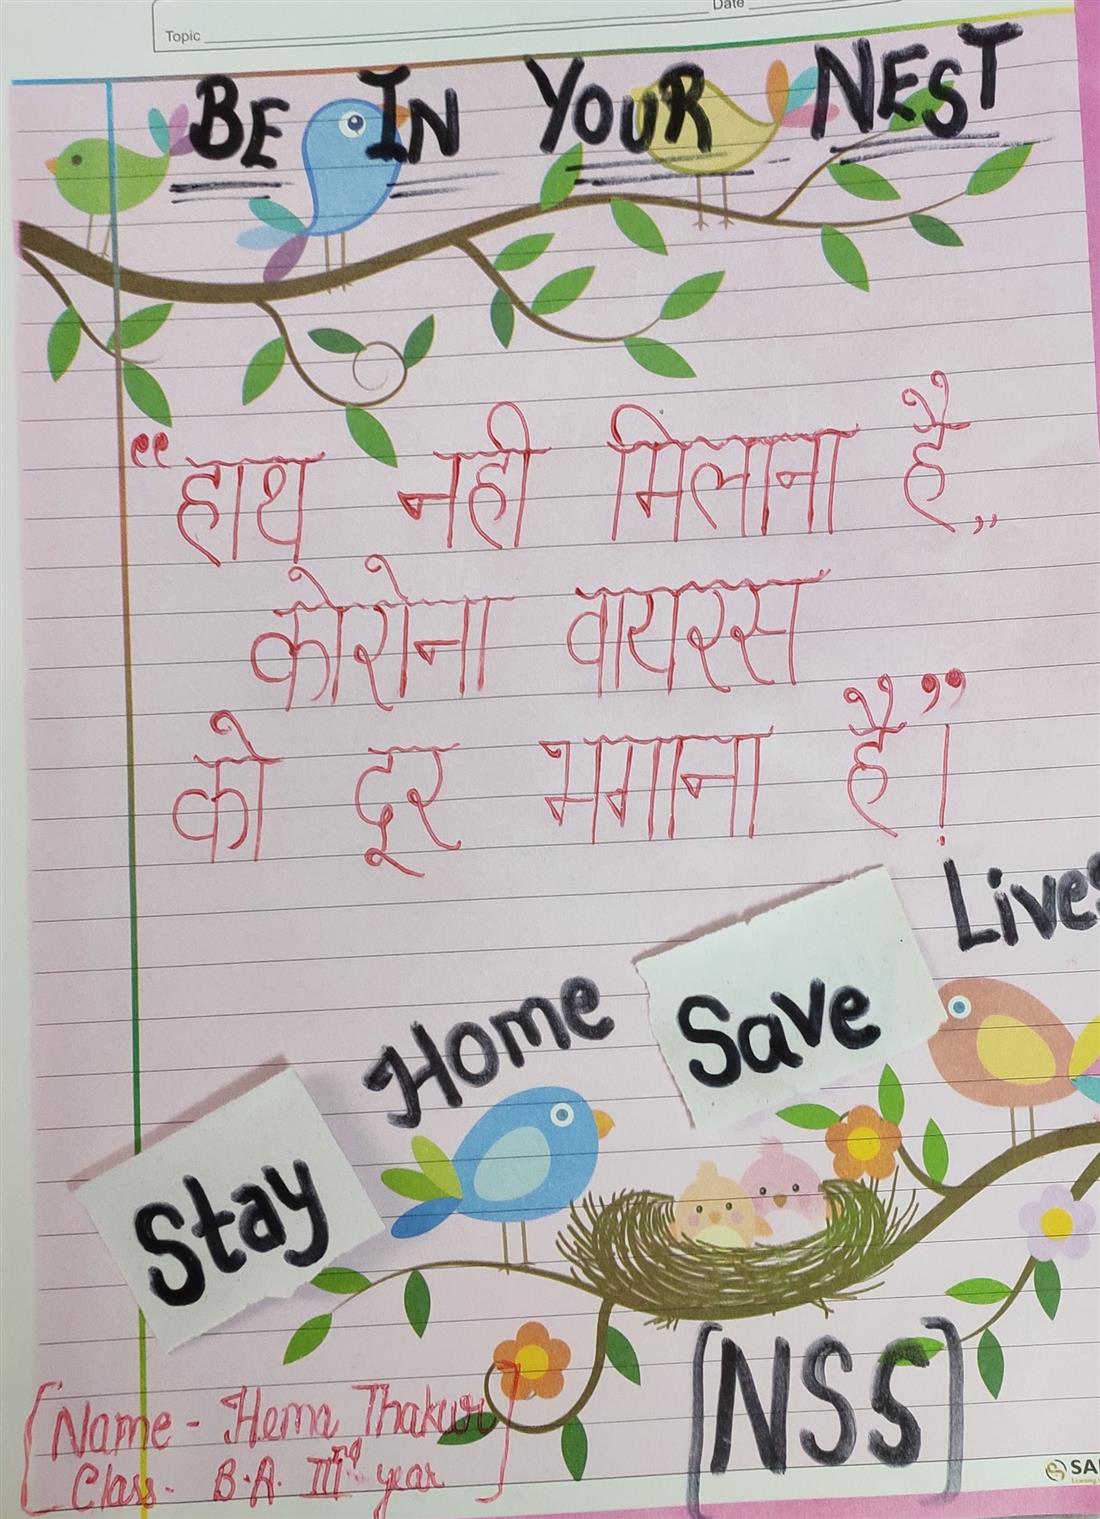 Topic
Date
BE IN YOUR NEST
“हाथ नही मिलाना है,,
कोरोना वायरस
को दूर भगाना है”!
Stay Home Save Lives
[NSS]
[Name - Hema Thakur]
Class - B.A. IIIrd year